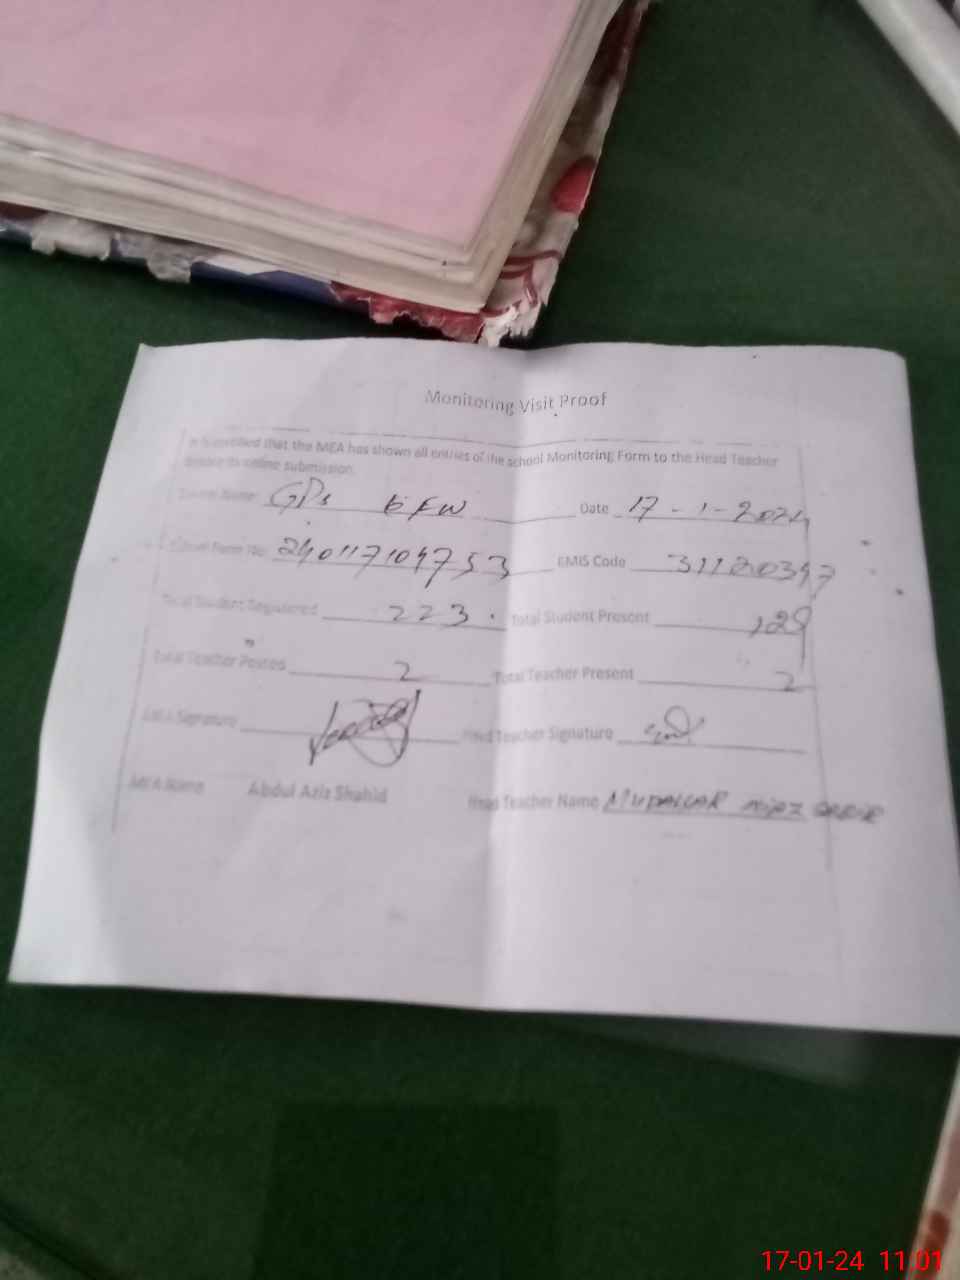 Monitoring Visit Proof
It is certified that the MEA has shown all entries of the school Monitoring Form to the Head Teacher
before its online submission.
School Name GPS Date 17-1-2024
School Form No 240117104753 EMIS Code 31120347
Total Student Registered 223 Total Student Present 129
Total Teacher Posted 2 Total Teacher Present 2
MEA Signature Head Teacher Signature
MEA Name Abdul Aziz Shahid Head Teacher Name
17-01-24 11:01